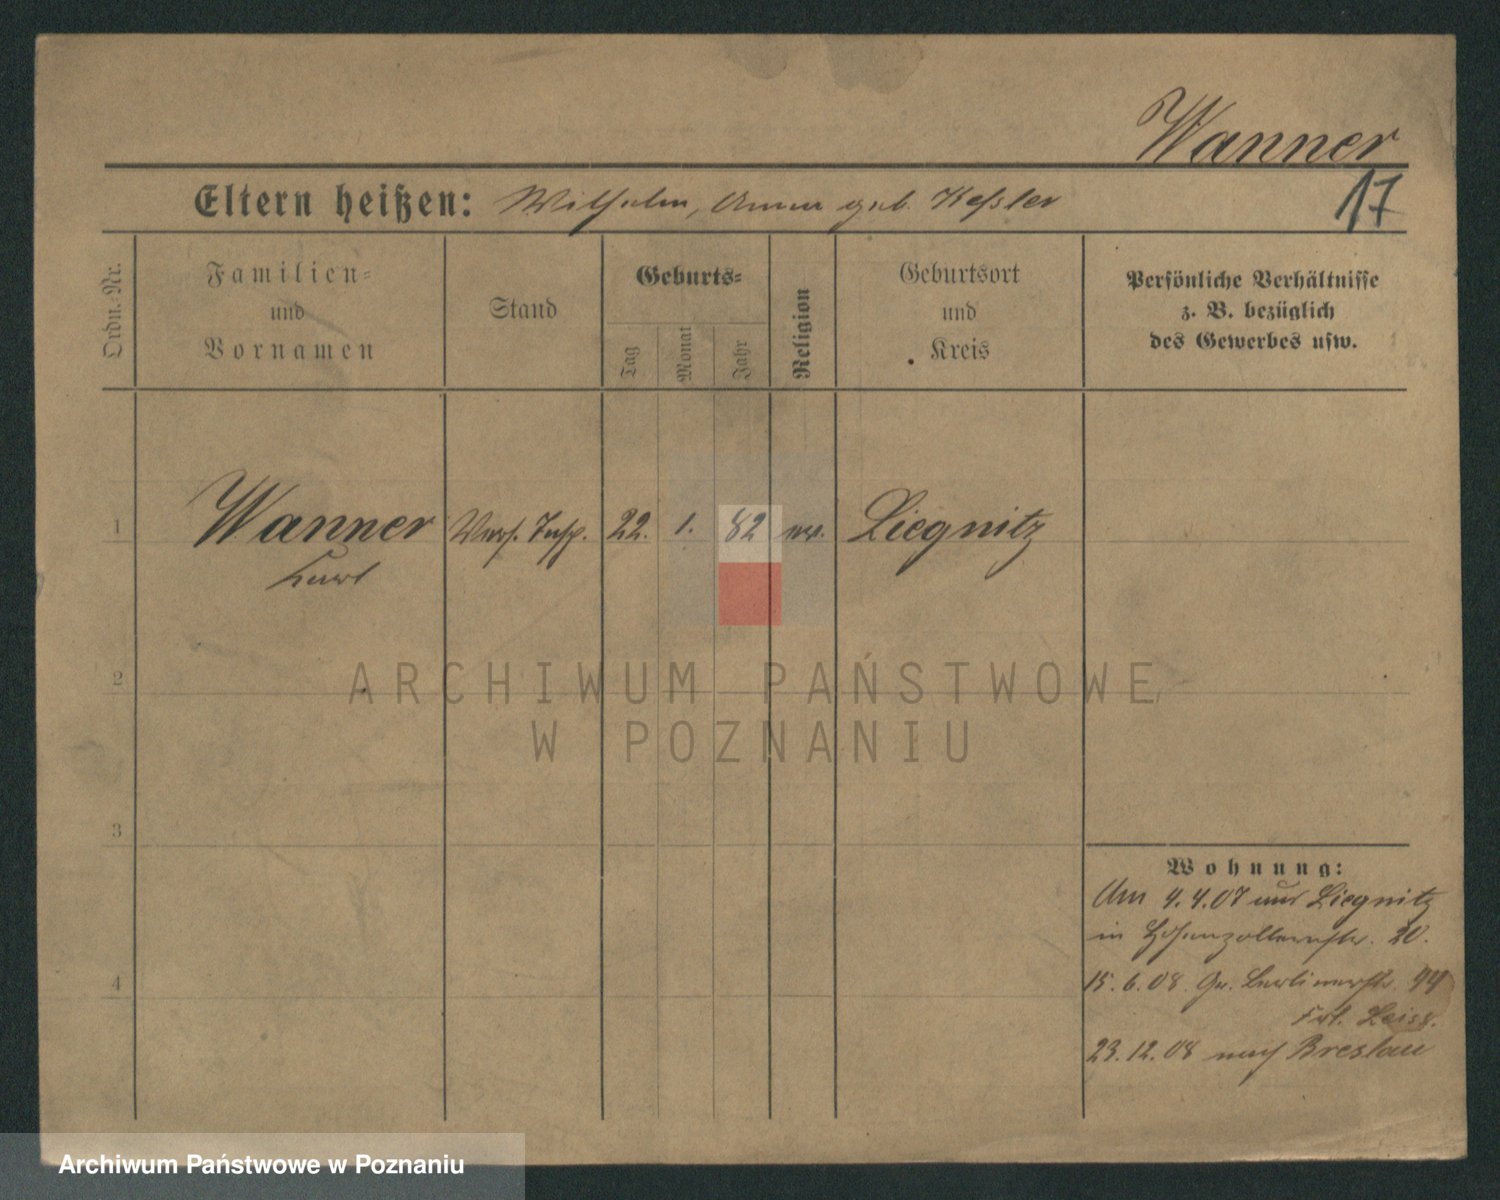 Wanner
Eltern heißen: Wilhelm, Anna geb. Keßler
17
Ordn.-Nr.
Familien-
und
Vornamen
Stand
Geburts-
Tag
Monat
Jahr
Religion
Geburtsort
und
Kreis
Persönliche Verhältnisse
z. B. bezüglich
des Gewerbes usw.
1
Wanner
Kurt
Vers. Insp.
22.
1.
82
ev.
Liegnitz
2
3
4
Wohnung:
Am 4.4.07 aus Liegnitz
in Hohenzollernstr. 20.
15.6.08 Gr. Berlinerstr. 94
23.12.08 nach Breslau
ARCHIWUM PAŃSTWOWE
W POZNANIU
Archiwum Państwowe w Poznaniu